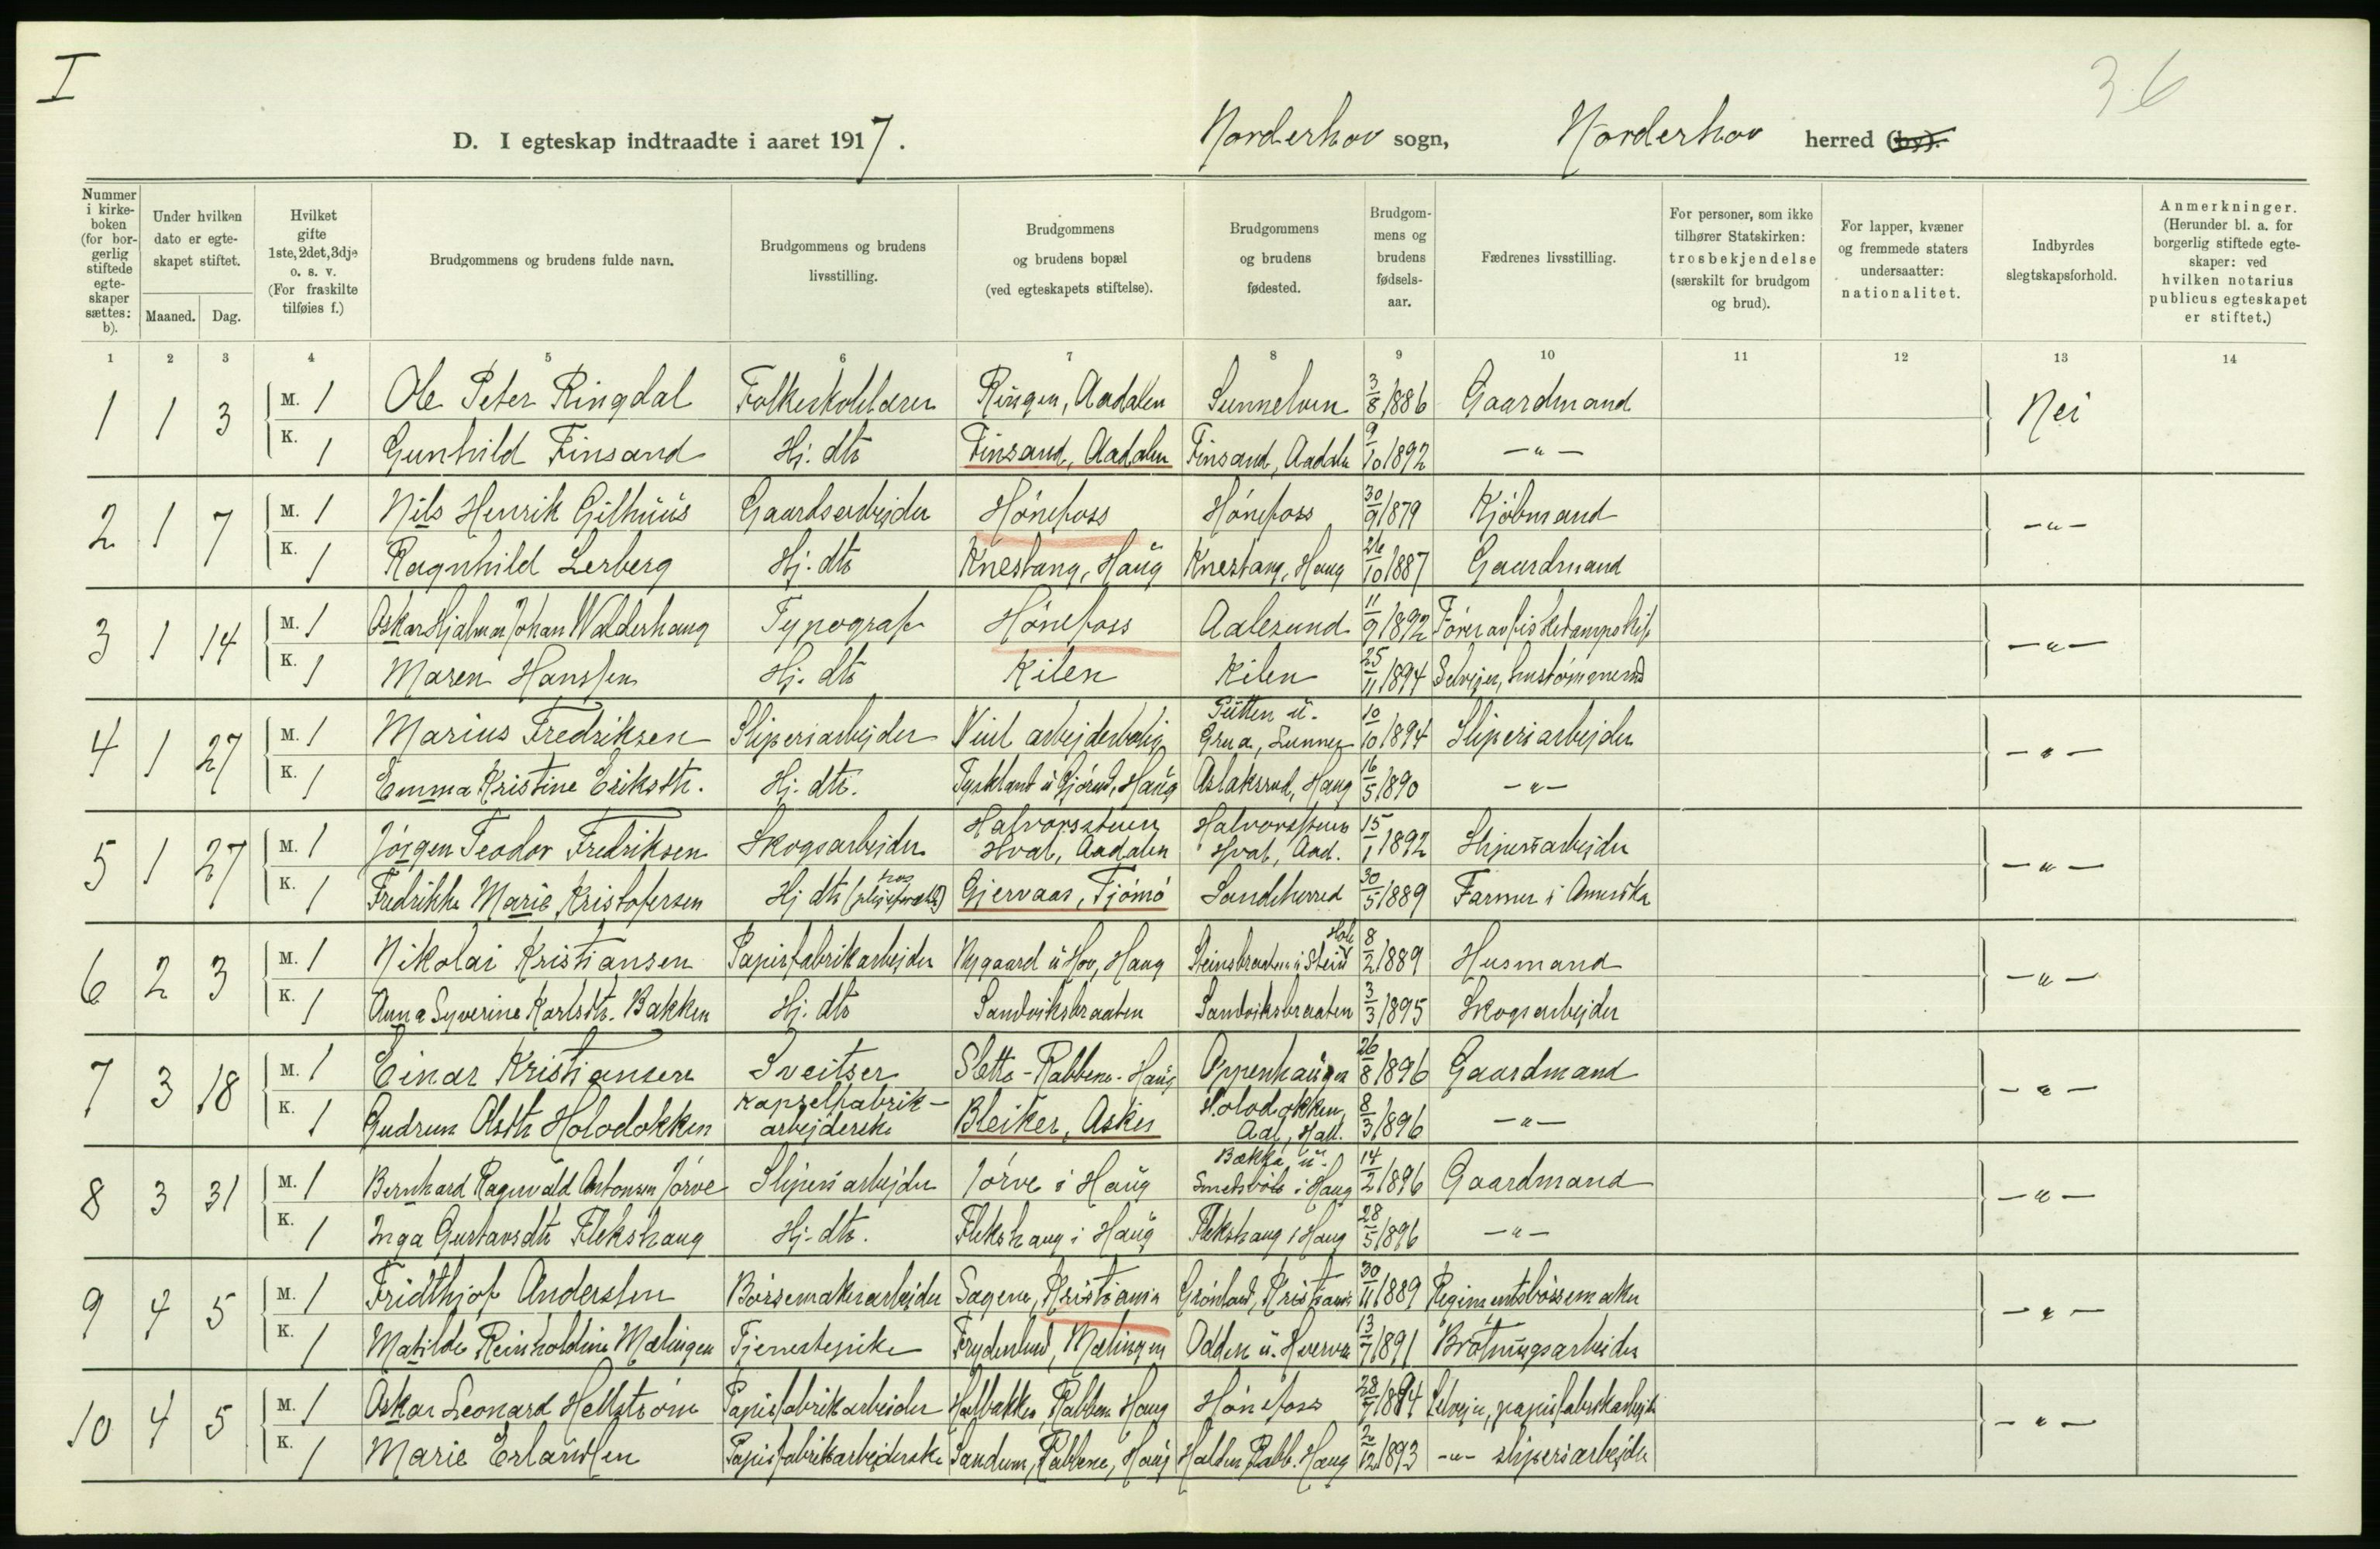 I
36
D. I egteskap indtraadte i aaret 1917.
Norderhov sogn, Norderhov herred (by).
Nummer i kirkeboken (for borgerlig stiftede egteskaper sættes: b).
Under hvilken dato er egteskapet stiftet.
Maaned. Dag.
Hvilket gifte 1ste, 2det, 3dje o. s. v. (For fraskilte tilføies f.)
Brudgommens og brudens fulde navn.
Brudgommens og brudens livsstilling.
Brudgommens og brudens bopæl (ved egteskapets stiftelse).
Brudgommens og brudens fødested.
Brudgommens og brudens fødselsaar.
Fædrenes livsstilling.
For personer, som ikke tilhører Statskirken: trosbekjendelse (særskilt for brudgom og brud).
For lapper, kvæner og fremmede staters undersaatter: nationalitet.
Indbyrdes slegtskapsforhold.
Anmerkninger. (Herunder bl. a. for borgerlig stiftede egteskaper: ved hvilken notarius publicus egteskapet er stiftet.)
1 2 3 4 5 6 7 8 9 10 11 12 13 14
1 1 3 M. 1 Ole Peter Ringdal Folkeskolelærer Ringen, Aadalen Sunnelven 3/8 1886 Gaardmand Nei
K. 1 Gunhild Finsand Hj. dtr Finsand, Aadalen Finsand, Aadalen 9/10 1892 -"-
2 1 7 M. 1 Nils Henrik Gilhuus Gaardsarbejder Hönefoss Hönefoss 30/9 1879 Kjöbmand -"-
K. 1 Ragnhild Lerberg Hj. dtr Knestang, Haug Knestang, Haug 26/10 1887 Gaardmand
3 1 14 M. 1 Oskar Hjalmar Johan Walderhaug Typograf Hönefoss Aalesund 11/9 1892 Förer av fiskedampskib -"-
K. 1 Maren Hanssen Hj. dtr Kilen Kilen 25/11 1894 Selvejer, hustömmerm
4 1 27 M. 1 Marius Fredriksen Sliperiarbejder Viul arbejderbolig Pütten u. Grua, Lunner 10/10 1894 Sliperiarbejder -"-
K. 1 Emma Kristine Eriksdtr. Hj. dtr. Tyskland u Gjörud, Haug Aslaksrud, Haug 16/5 1890 -"-
5 1 27 M. 1 Jörgen Teodor Fredriksen Skogsarbejder Halvorsstuen Hval, Aadalen Halvorsstuen Hval, Aad. 15/1 1892 Sliperiarbejder -"-
K. 1 Fredrikke Marie Kristofersen Hj dtr (hos plejeforældre) Gjervaas, Tjömö Sandeherred 30/5 1889 Farmer i Amerika
6 2 3 M. 1 Nikolai Kristiansen Papirfabrikarbejder Nygaard u Hov, Haug Steinsbraaten u Stein Hole 8/2 1889 Husmand -"-
K. 1 Anna Syverine Karlsdtr. Bakken Hj. dtr Sandviksbraaten Sandviksbraaten 3/3 1895 Skogsarbejder
7 3 18 M. 1 Einar Kristiansen Sveitser Sletta - Rabbene - Haug Oppenhaugen 26/8 1896 Gaardmand -"-
K. 1 Gudrun Olsdtr Holodokken Kapselfabrik-arbejderske Bleiker, Asker Holodokken, Aal, Hall. 8/3 1896 -"-
8 3 31 M. 1 Bernhard Ragnvald Antonsen Jörve Sliperiarbejder Jörve i Haug Bakke u. Smedsböle i Haug 14/2 1896 Gaardmand -"-
K. 1 Inga Gustavsdtr Flekshaug Hj. dtr. Flekshaug i Haug Flekshaug i Haug 28/5 1896 -"-
9 4 5 M. 1 Fridthjof Anderssen Börsemakerarbejder Sagene, Kristiania Grönland, Kristiania 30/11 1889 Regimentsbörsemaker -"-
K. 1 Matilde Reinholdine Mælingen Tjenestepike Frydenlund, Mælingen Odden u. Hverven 13/7 1891 Brötningsarbeider
10 4 5 M. 1 Oskar Leonard Hellström Papirfabrikarbeider Halbakken, Rabben Haug Hönefoss 28/7 1894 Selvejer, papirfabrikarbejder -"-
K. 1 Marie Erlandsen Papirfabrikarbejderske Sandum, Rabbene, Haug Halden Rabb. Haug 20/12 1893 -"- sliperiarbejder